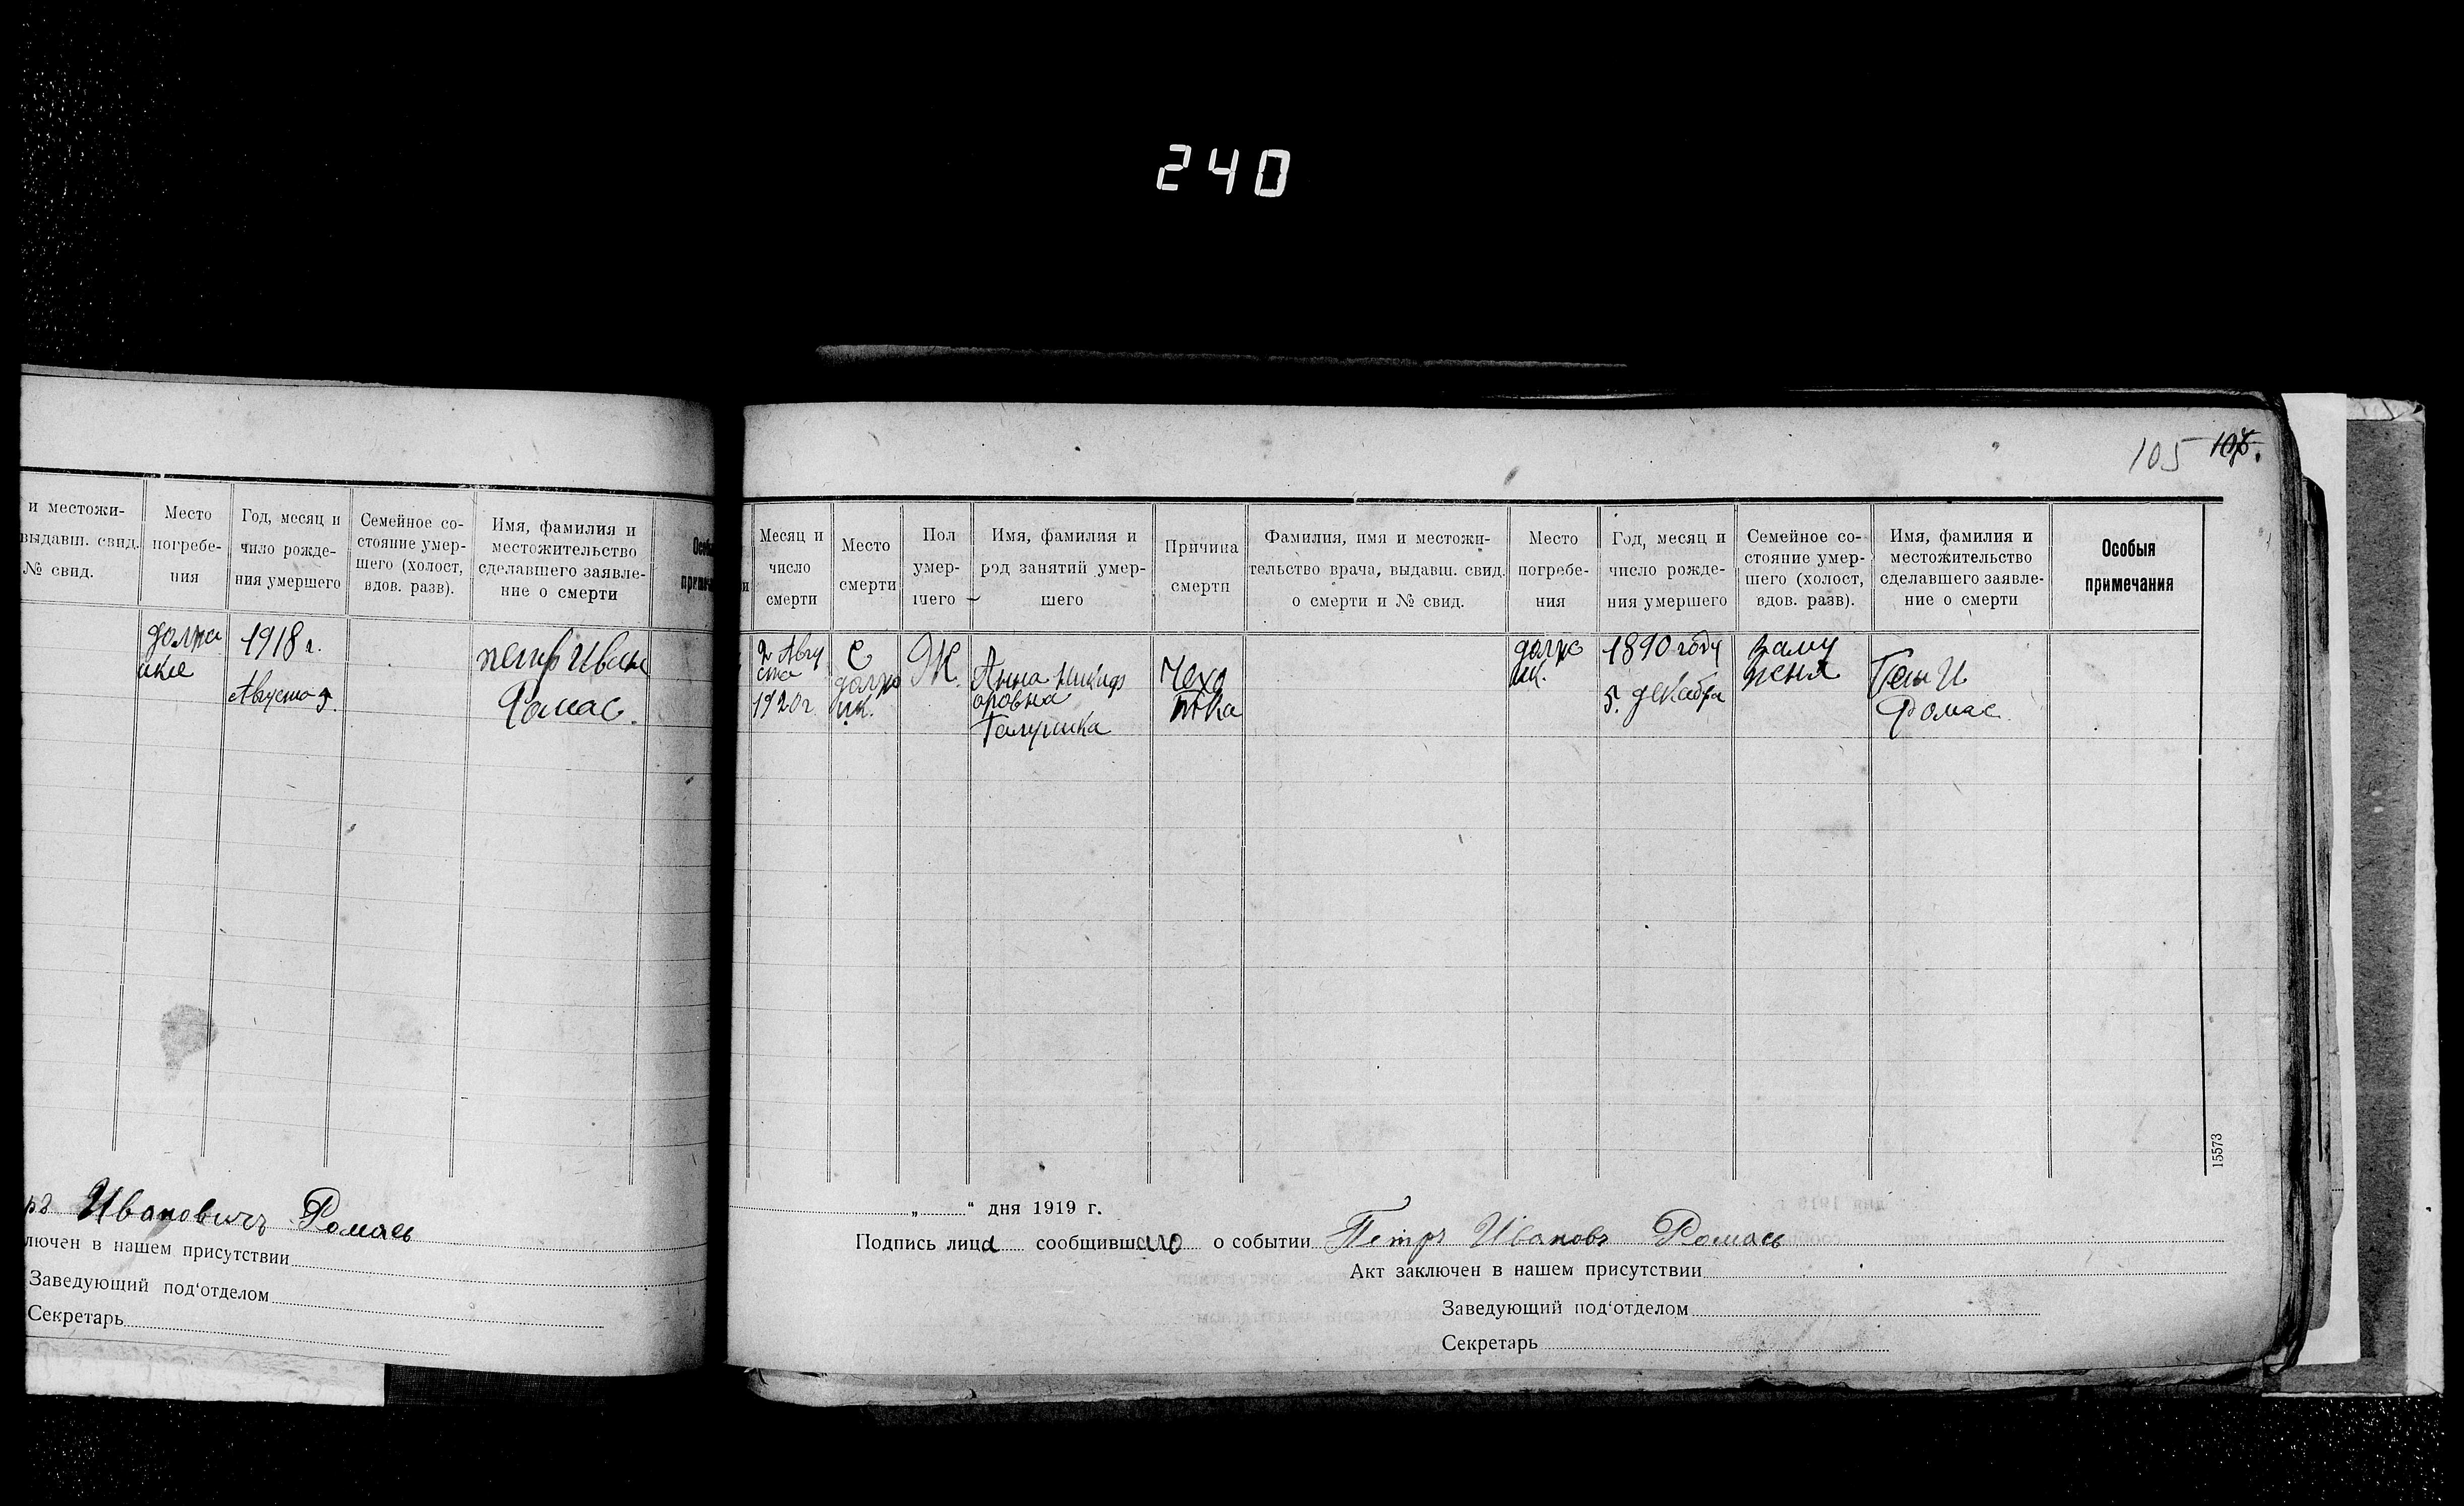 240
105 107.
и местожи-
выдавш. свид.
№ свид.
Место
погребе-
ния
Год, месяц и
число рожде-
ния умершего
Семейное со-
стояние умер-
шего (холост,
вдов. разв).
Имя, фамилия и
местожительство
сделавшего заявле-
ние о смерти
1918 г.
Августа
петр Иван
Ромас.
Иванович Ромась
лючен в нашем присутствии
Заведующий под‘отделом
Секретарь
Месяц и
число
смерти
Место
смерти
Пол
умер-
шего
Имя, фамилия и
род занятий умер-
шего
Причина
смерти
Фамилия, имя и местожи-
тельство врача, выдавш. свид.
о смерти и № свид.
Место
погребе-
ния
Год, месяц и
число рожде-
ния умершего
Семейное со-
стояние умер-
шего (холост,
вдов. разв).
Имя, фамилия и
местожительство
сделавшего заявле-
ние о смерти
Особыя
примечания
2 Авгу
ста
1920 г
с
Ж.
Анна Никиф
оровна
Галушка
Чехо
тка
1890 году
5. декабря
заму
женя
Ромас
15573
„ “ дня 1919 г.
Подпись лица сообщившаго о событии Петр Иванов Ромась
Акт заключен в нашем присутствии
Заведующий под‘отделом
Секретарь